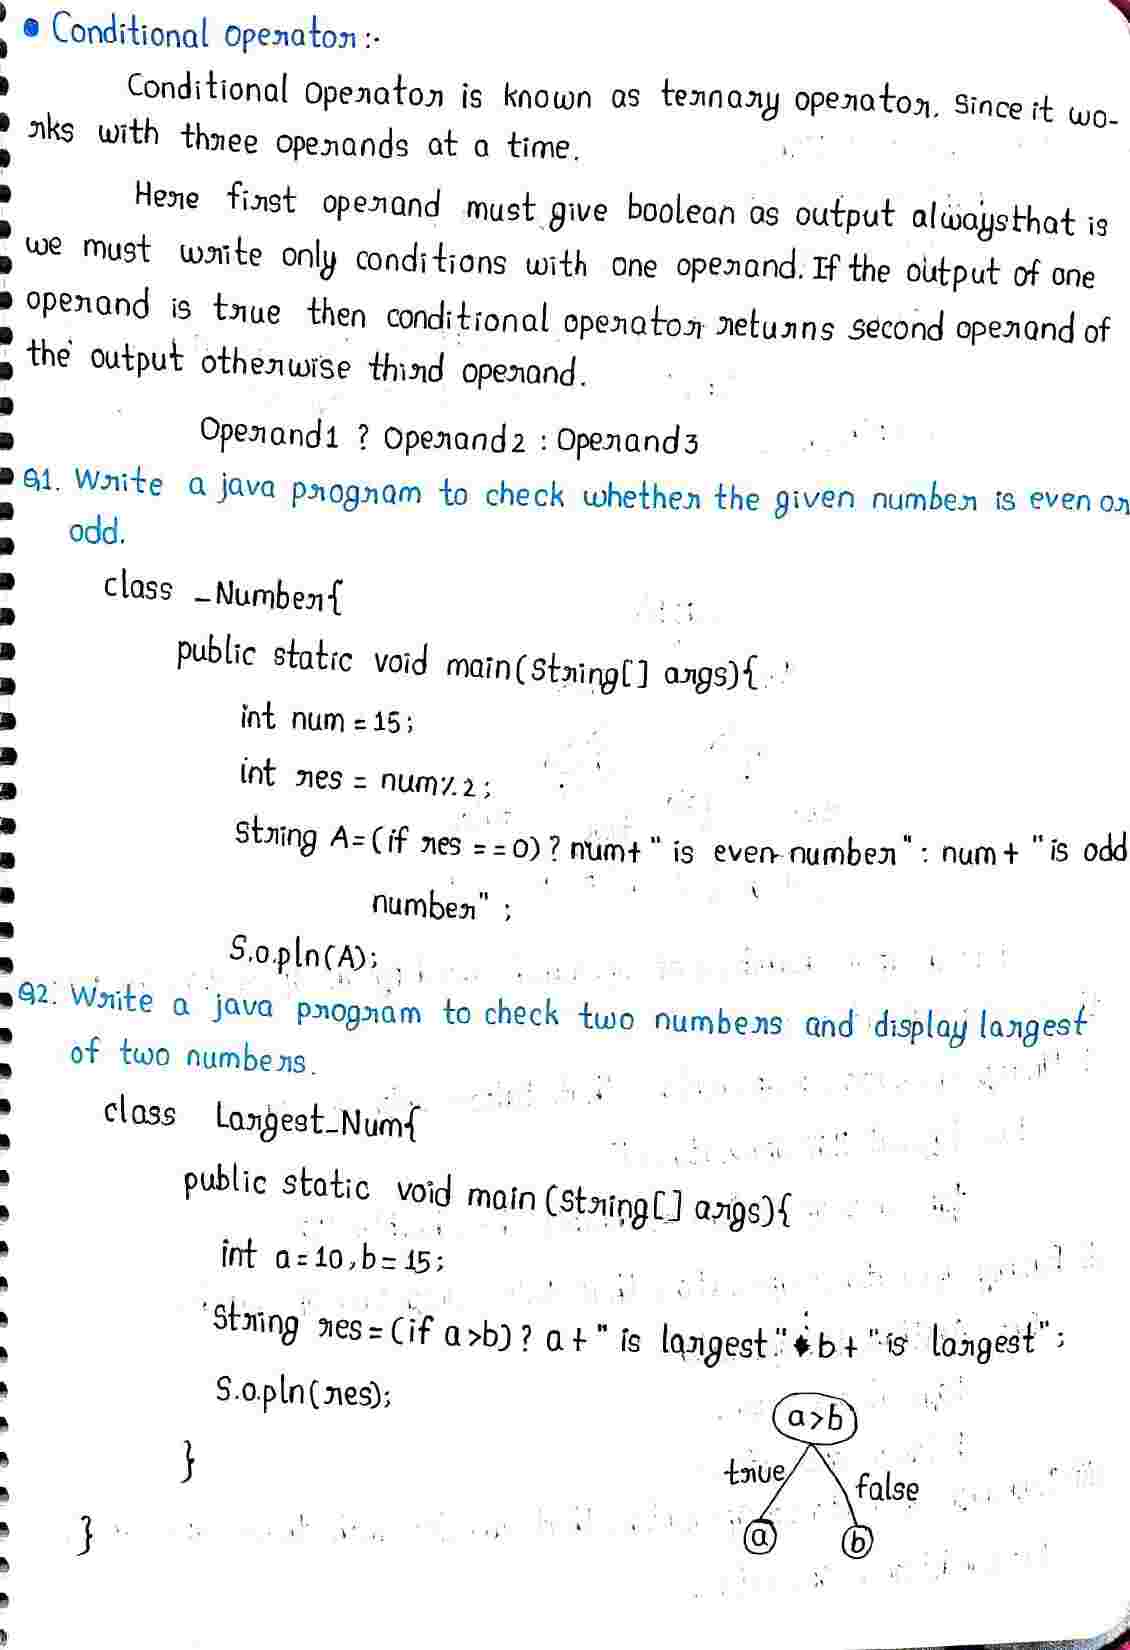 Conditional operator:-
Conditional operator is known as ternary operator. Since it wo-
rks with three operands at a time.
Here first operand must give boolean as output always that is
we must write only conditions with one operand. If the output of one
operand is true then conditional operator returns second operand of
the output otherwise third operand.
Operand1 ? Operand2 : Operand3
Q1. Write a java program to check whether the given number is even or
odd.
class _Number{
public static void main(String[] args){
int num = 15;
int res = num%2;
String A=(if res ==0)? num+" is even number": num+ "is odd
number";
S.o.pln(A);
Q2. Write a java program to check two numbers and display largest
of two numbers.
class Largest_Num{
public static void main (String[] args){
int a=10,b=15;
String res=(if a>b)? a+" is largest":b+"is largest";
S.o.pln(res);
a>b
}
true
false
}
a b